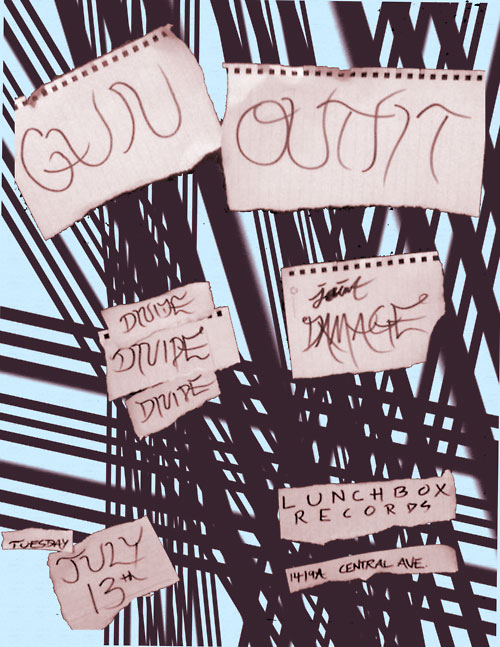 GUN OUTFIT
DIVIDE
DIVIDE
DIVIDE
joint
DAMAGE
LUNCHBOX
RECORDS
1419A CENTRAL AVE.
TUESDAY
JULY
13TH